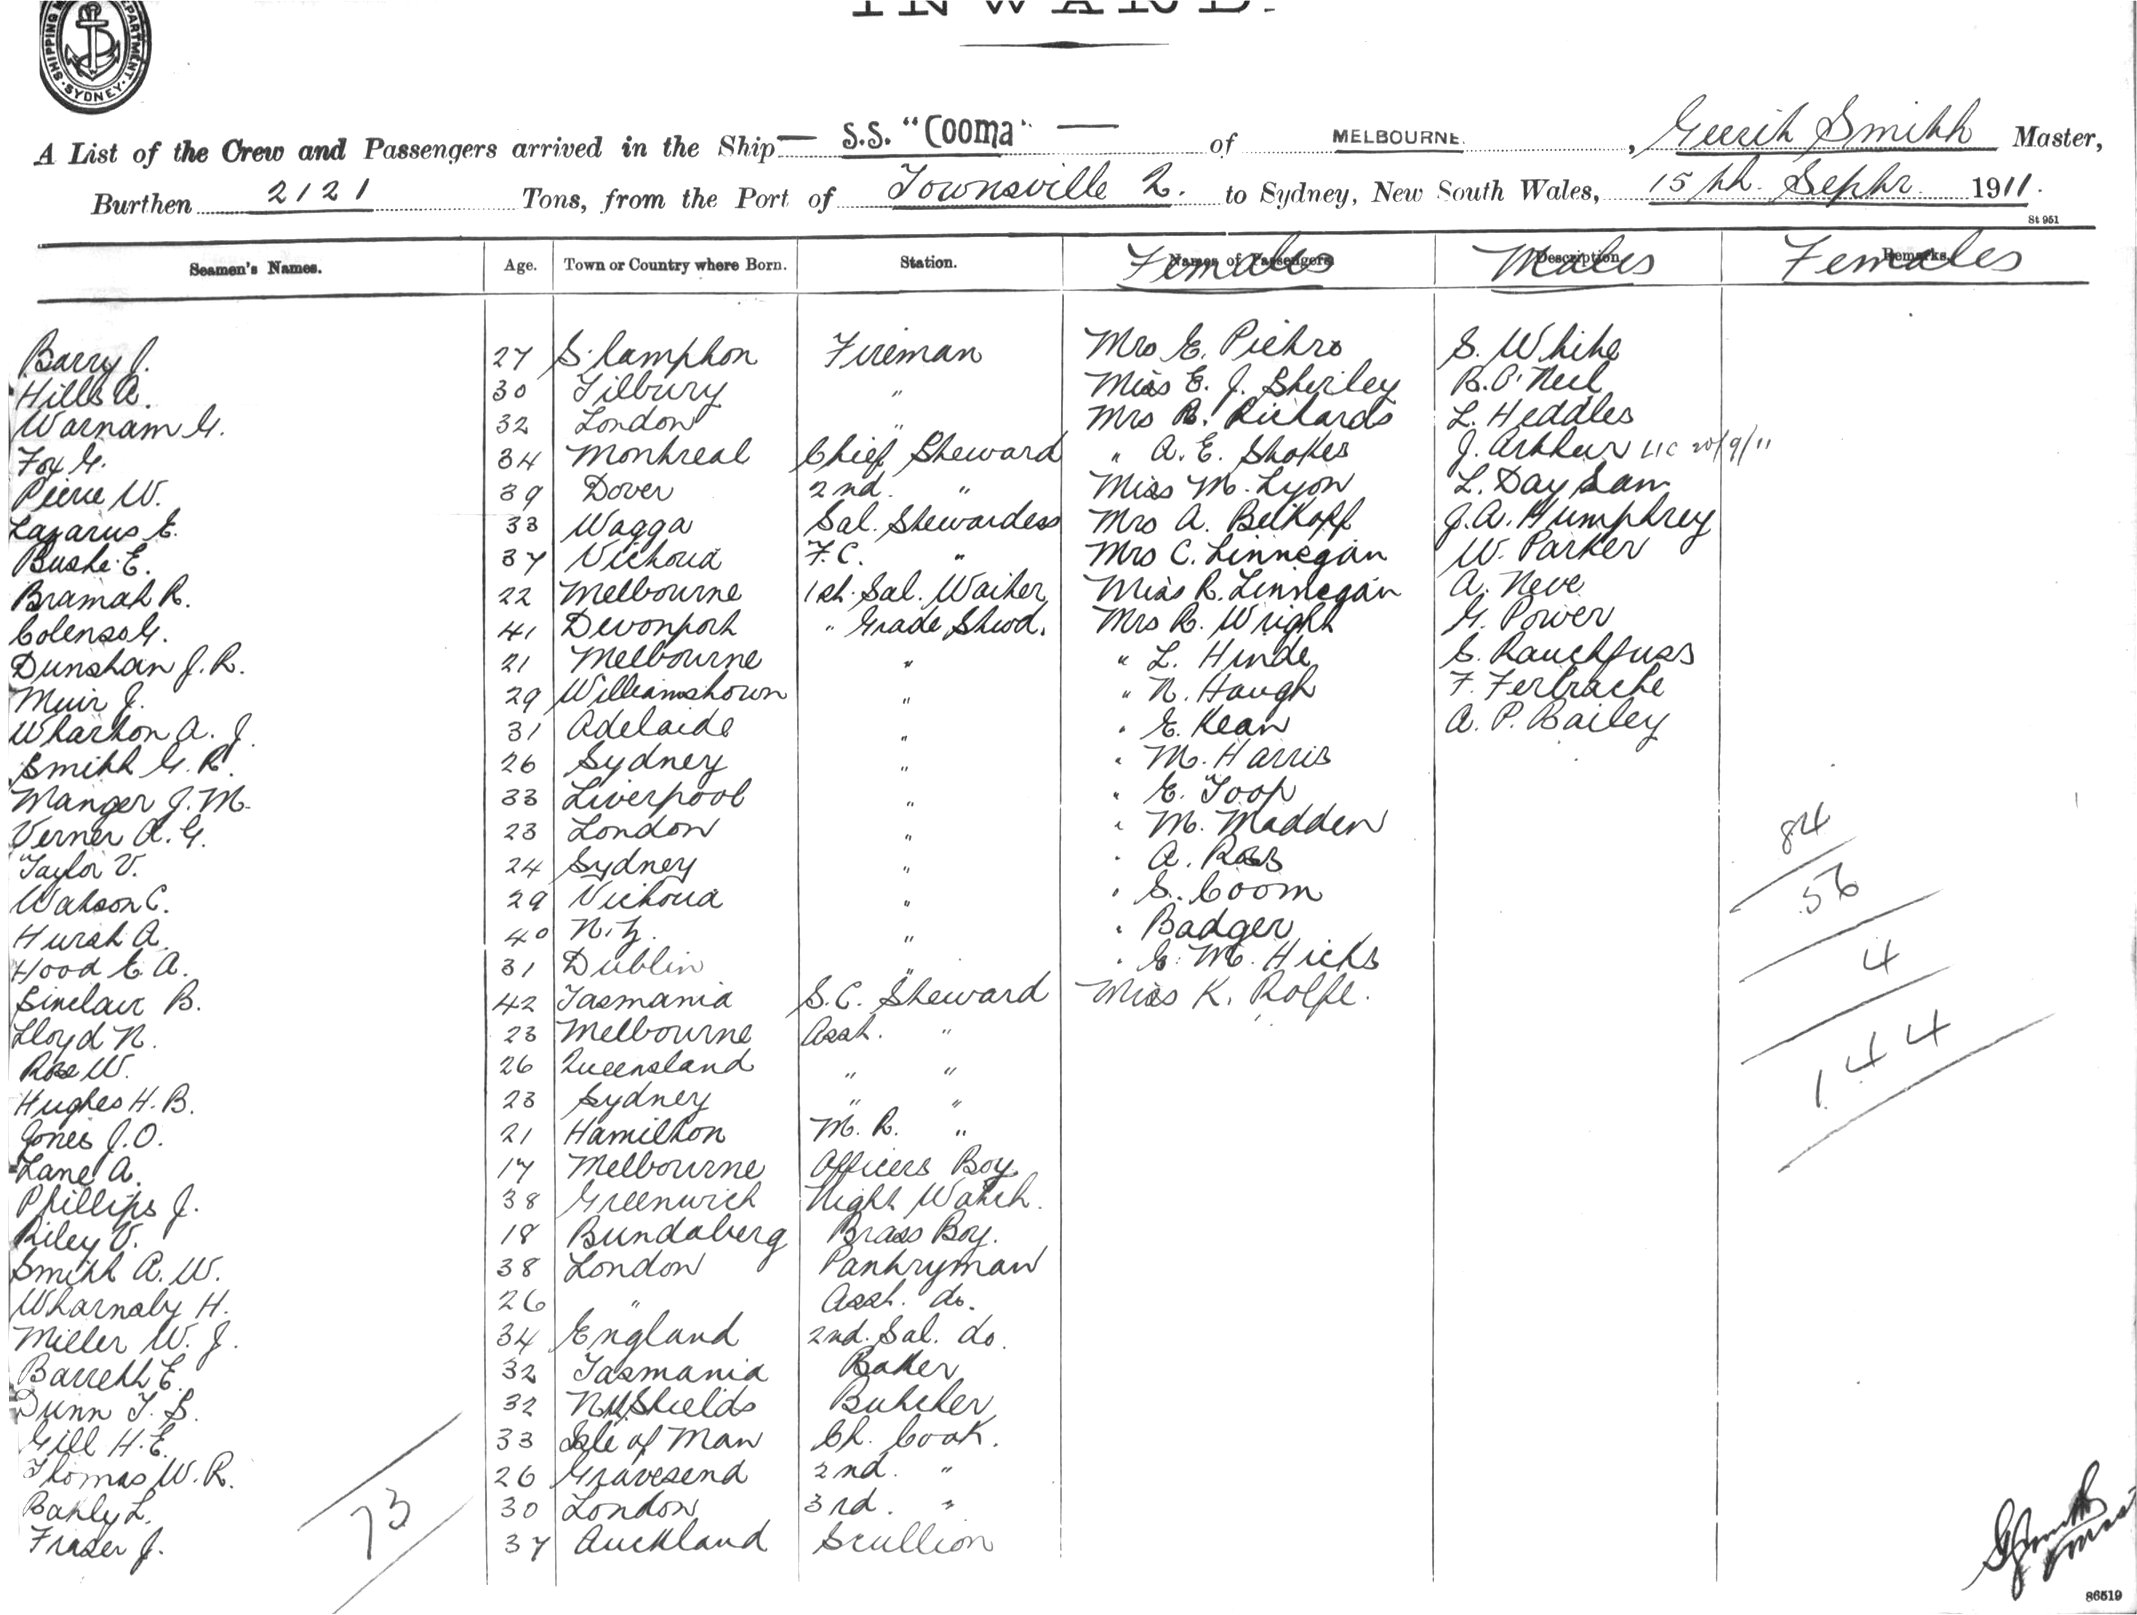 INWARD.
SHIPPING DEPARTMENT SYDNEY
A List of the Crew and Passengers arrived in the Ship S.S. "Cooma" of MELBOURNE, Smith Master,
Burthen 2121 Tons, from the Port of Townsville Q. to Sydney, New South Wales, 15th Septr. 1911.
St 951
Seamen's Names. Age. Town or Country where Born. Station. Names of Passengers Females Description Males Remarks. Females
Barry J. 27 S'hampton Fireman Mrs E. Pietro S. White
Hills A. 30 Tilbury " Miss E. J. Shirley B. O'Neil
Warnam G. 32 London " Mrs R. Richards L. Heddles
Fox G. 34 Montreal Chief Steward " A. E. Stokes J. Arthur LIC 20/9/11
Pierce W. 39 Dover 2nd. " Miss M. Lyon L. Day Sam
Lazarus E. 33 Wagga Sal. Stewardess Mrs A. J. A. Humphrey
Bushe E. 37 Victoria F.C. " Mrs C. Linnegan W. Parker
Bramah R. 22 Melbourne 1st. Sal. Waiter Miss R. Linnegan A. Neve
Colenso G. 41 Devonport " Grade Stwd. Mrs R. Wright G. Power
Dunstan J. R. 21 Melbourne " " L. Hinde S. Rauchfuss
Muir J. 29 Williamstown " " N. Haugh F. Ferbrache
Wharton A. J. 31 Adelaide " " E. Kean A. P. Bailey
Smith G. R. 26 Sydney " " M. Harris
Manger J. M. 33 Liverpool " " E. Toop
Verner A. G. 23 London " " M. Madden
Taylor V. 24 Sydney " " A. Ross
Watson C. 29 Victoria " " S. Coom
Hurst A. 40 N.Z. " " Badger
Hood E A. 31 Dublin " " E. M. Hicks
Sinclair B. 42 Tasmania S.C. Steward Miss K. Rolfe.
Lloyd N. 23 Melbourne Asst. "
Rose W. 26 Queensland " "
Hughes H. B. 23 Sydney " "
Jones J. O. 21 Hamilton M. R. "
Lane A. 17 Melbourne Officers Boy
Phillips J. 38 Greenwich Night Watch.
Riley V. 18 Bundaberg Brass Boy.
Smith A. W. 38 London Pantryman
Wharnsby H. 26 " Asst. do.
Miller W. J. 34 England 2nd. Sal. do.
Barrett E. 32 Tasmania Baker
Dunn T. S. 32 Nth Shields Butcher
Gill H. E. 33 Isle of Man Ch. Cook.
Thomas W. R. 26 Gravesend 2nd. "
Batley L. 30 London 3rd. "
Fraser J. 37 Auckland Scullion
73
84
56
4
144
86519